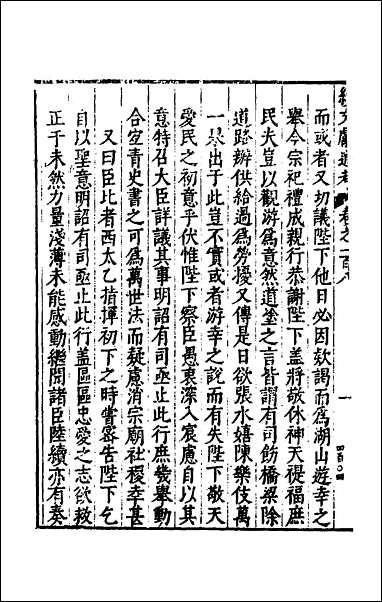 續文獻通考 卷之一百八 一
而或者又切議陛下他日必因欵謁而爲湖山遊幸之
舉今宗祀禮成親行恭謝陛下蓋將敬休神天禔福庶
民夫豈以觀游爲意然道塗之言皆謂有司飭橋梁除
道路辦供給過爲勞擾又傳是日欲張水嬉陳樂伎萬
一果出于此豈不實或者游幸之說而有失陛下敬天
愛民之初意乎伏惟陛下察臣愚衷深入宸慮自以其
意特召大臣詳議其事明詔有司亟止此行庶幾舉動
合宜青史書之可爲萬世法而疑慮消宗廟社稷幸甚
又曰臣比者西太乙指揮初下之時嘗密告陛下乞
自以聖意明詔有司亟止此行蓋區區忠愛之志欲救
正于未然力量淺薄未能感動繼聞諸臣陸續亦有奏